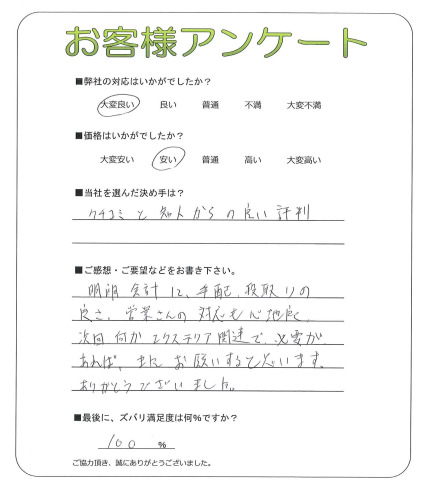 お客様アンケート
■弊社の対応はいかがでしたか?
大変良い 良い 普通 不満 大変不満
■価格はいかがでしたか?
大変安い 安い 普通 高い 大変高い
■当社を選んだ決め手は?
クチコミと知人からの良い評判
■ご感想・ご要望などをお書き下さい。
明朗会計に、手配、段取りの
良さ、営業さんの対応も心地良く
次回何かエクステリア関連で必要が
あれば、またお願いすると思います。
ありがとうございました。
■最後に、ズバリ満足度は何%ですか?
100 %
ご協力頂き、誠にありがとうございました。